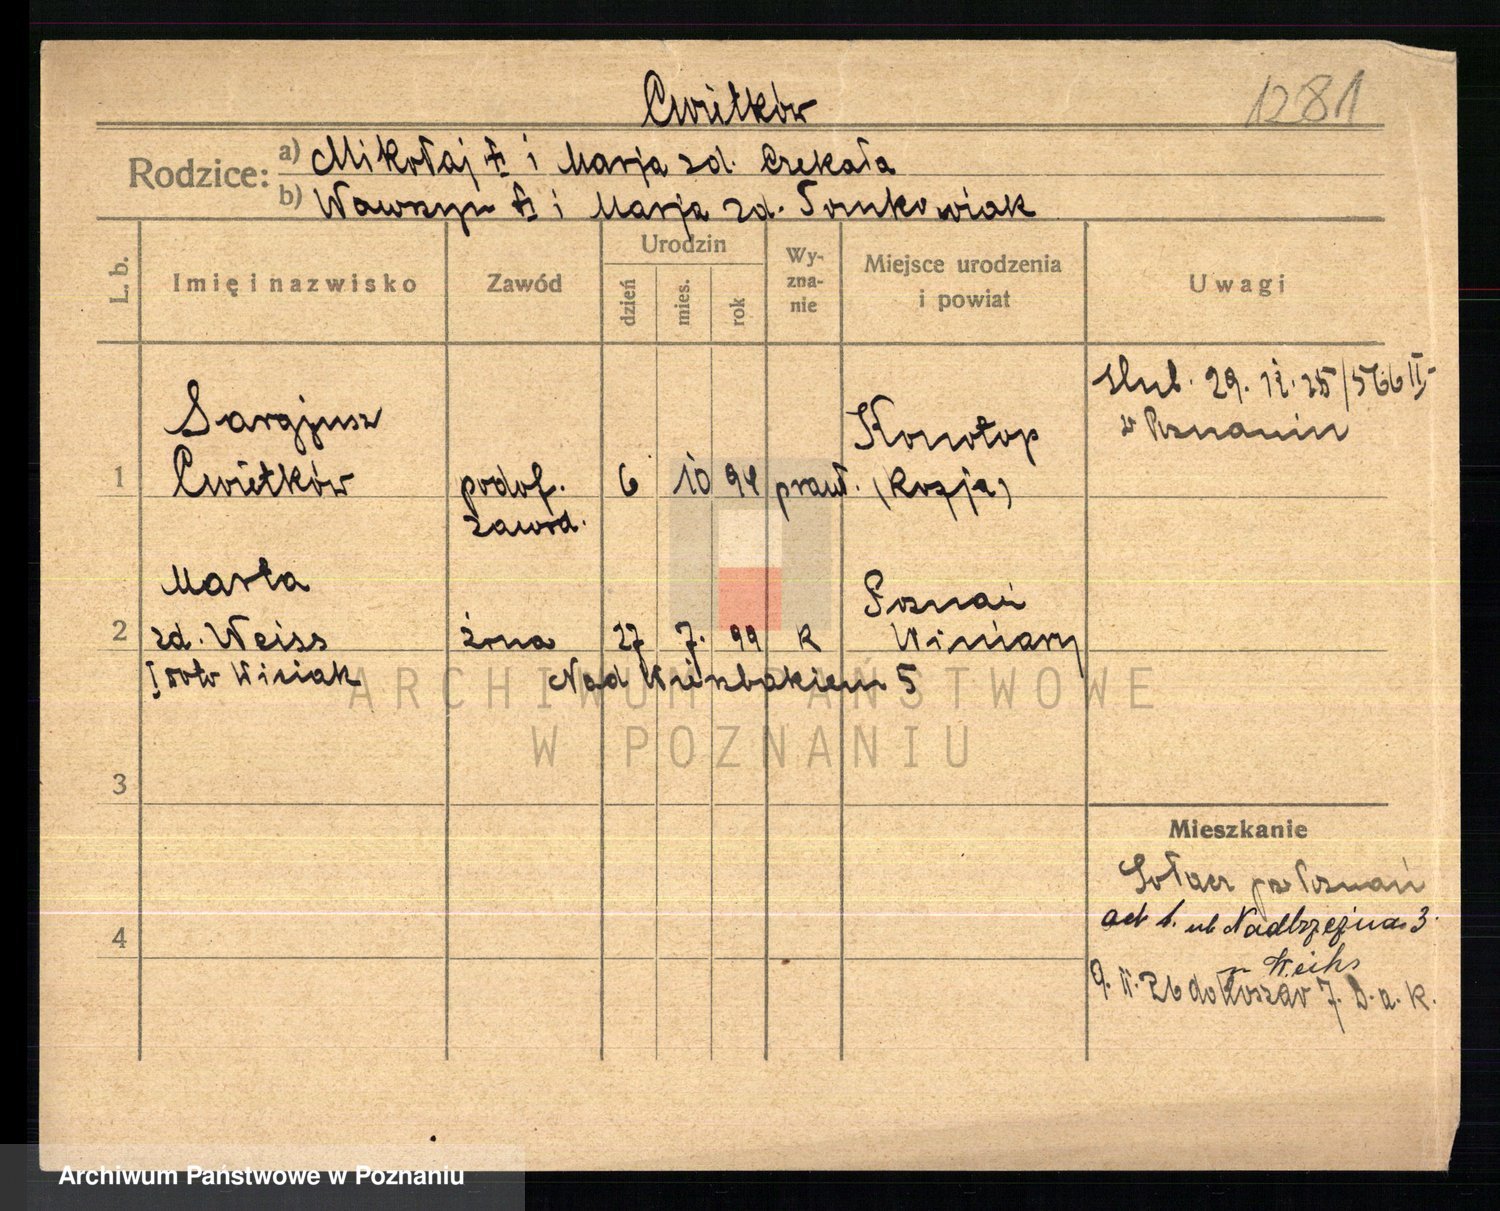 Cwiełków
1281
Rodzice:
a) Mikołaj i Marja zd. Czekała
b) Wawrzyn i Marja zd. Tomkowiak
L. b.
Imię i nazwisko
Zawód
Urodzin
dzień
mies.
rok
Wy-
zna-
nie
Miejsce urodzenia
i powiat
Uwagi
ślub. 29. 12. 25/566 II
w Poznaniu
Sargjusz
Konotop
1 Cwiełków podof. 6 10 94 prawł. (Rosja)
zawod.
Marta
Poznań
2 zd. Weiss żona 27 7. 99 k Winiary
I voto Winiak Nad Wierzbakiem 5
ARCHIWUM PAŃSTWOWE
W POZNANIU
3
Mieszkanie
Sołacz Poznań
4
ul Nadbrzeżna 3
9. II. 26 do Koszar 7. D. a. K.
Archiwum Państwowe w Poznaniu